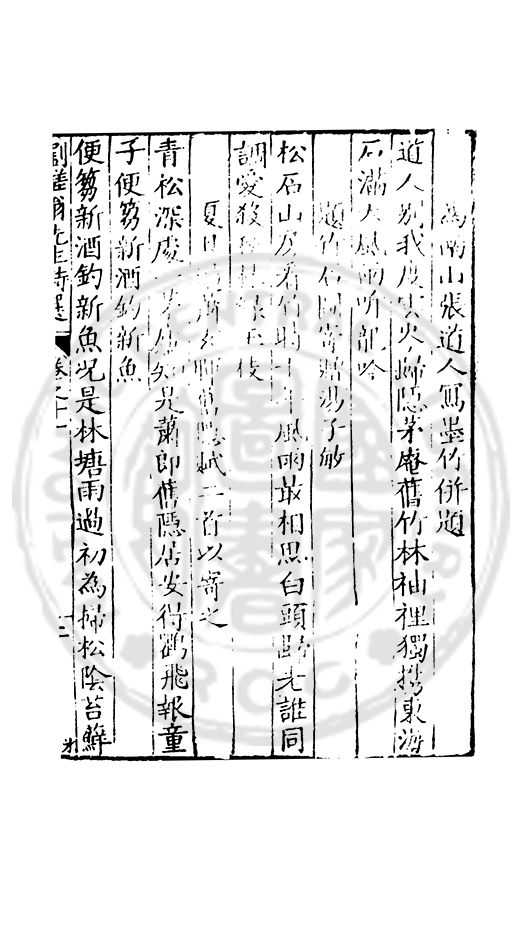 為南山張道人寫墨竹併題
道人別我度雲歸隱茅庵舊竹林袖裡獨携東海
石滿天風雨聽龍吟
題竹石圖寄贈湯子敏
松石山房看竹時十年風雨最相思白頭歸誰同
調愛殺綠玉枝
夏日過蕭舊隱賦二首以寄之
青松深處一茅居知是蕭郎舊隱居安得鶴飛報童
子便芻新酒釣新魚
便芻新酒釣新魚況是林塘雨過初為掃松陰苔蘚
劉槎翁先生詩選 卷之十一 十二